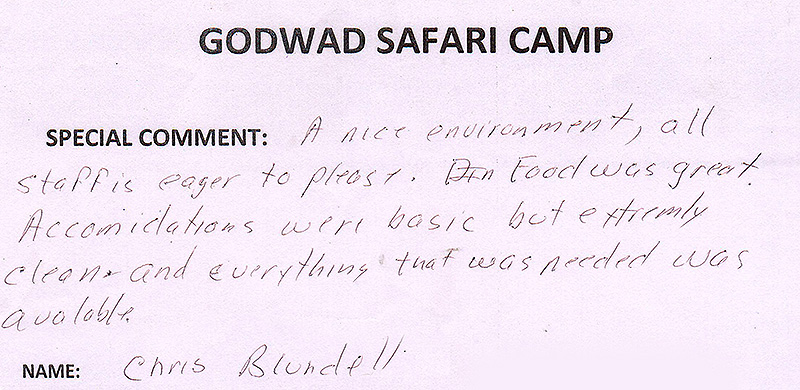 GODWAD SAFARI CAMP
SPECIAL COMMENT: A nice environment, all
staff is eager to please. Food was great.
Accomidations were basic but extremly
clean and everything that was needed was
avalable.
NAME: Chris Blundell